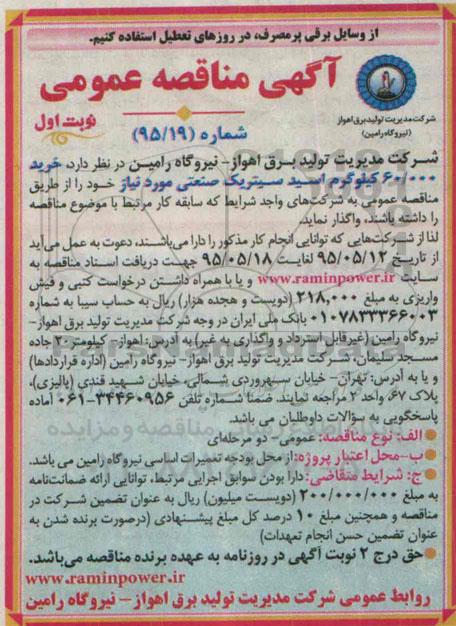 از وسایل برقی پرمصرف، در روزهای تعطیل استفاده کنیم.
آگهی مناقصه عمومی
شرکت مدیریت تولید برق اهواز
(نیروگاه رامین)
نوبت اول
شماره (۹۵/۱۹)
شرکت مدیریت تولید برق اهواز- نیروگاه رامین در نظر دارد، خرید
۶۰/۰۰۰ کیلوگرم اسید سیتریک صنعتی مورد نیاز خود را از طریق
مناقصه عمومی به شرکت‌های واجد شرایط که سابقه کار مرتبط با موضوع مناقصه
را داشته باشند، واگذار نماید.
لذا از شرکت‌هایی که توانایی انجام کار مذکور را دارا می‌باشند، دعوت به عمل می‌آید
از تاریخ ۹۵/۰۵/۱۲ لغایت ۹۵/۰۵/۱۸ جهت دریافت اسناد مناقصه به
سایت www.raminpower.ir و یا با همراه داشتن درخواست کتبی و فیش
واریزی به مبلغ ۲۱۸,۰۰۰ (دویست و هجده هزار) ریال به حساب سیبا به شماره
۰۱۰۷۸۳۳۳۶۶۰۰۳ بانک ملی ایران در وجه شرکت مدیریت تولید برق اهواز-
نیروگاه رامین (غیرقابل استرداد و واگذاری به غیر) به آدرس: اهواز- کیلومتر ۲۰ جاده
مسجد سلیمان- شرکت مدیریت تولید برق اهواز- نیروگاه رامین (اداره قراردادها)
و یا به آدرس: تهران- خیابان سهروردی شمالی، خیابان شهید قندی (پالیزی)،
پلاک ۶۷، واحد ۲ مراجعه نمایند. ضمنا شماره تلفن ۳۴۴۶۰۹۵۶-۰۶۱ آماده
پاسخگویی به سؤالات داوطلبان می باشد.
الف: نوع مناقصه: عمومی- دو مرحله‌ای
ب- محل اعتبار پروژه: از محل بودجه تعمیرات اساسی نیروگاه رامین می باشد.
ج: شرایط متقاضی: دارا بودن سوابق اجرایی مرتبط، توانایی ارائه ضمانت‌نامه
به مبلغ ۲۰۰/۰۰۰/۰۰۰ (دویست میلیون) ریال به عنوان تضمین شرکت در
مناقصه و همچنین مبلغ ۱۰ درصد کل مبلغ پیشنهادی (درصورت برنده شدن به
عنوان تضمین حسن انجام تعهدات)
حق درج ۲ نوبت آگهی در روزنامه به عهده برنده مناقصه می‌باشد.
www.raminpower.ir
روابط عمومی شرکت مدیریت تولید برق اهواز- نیروگاه رامین